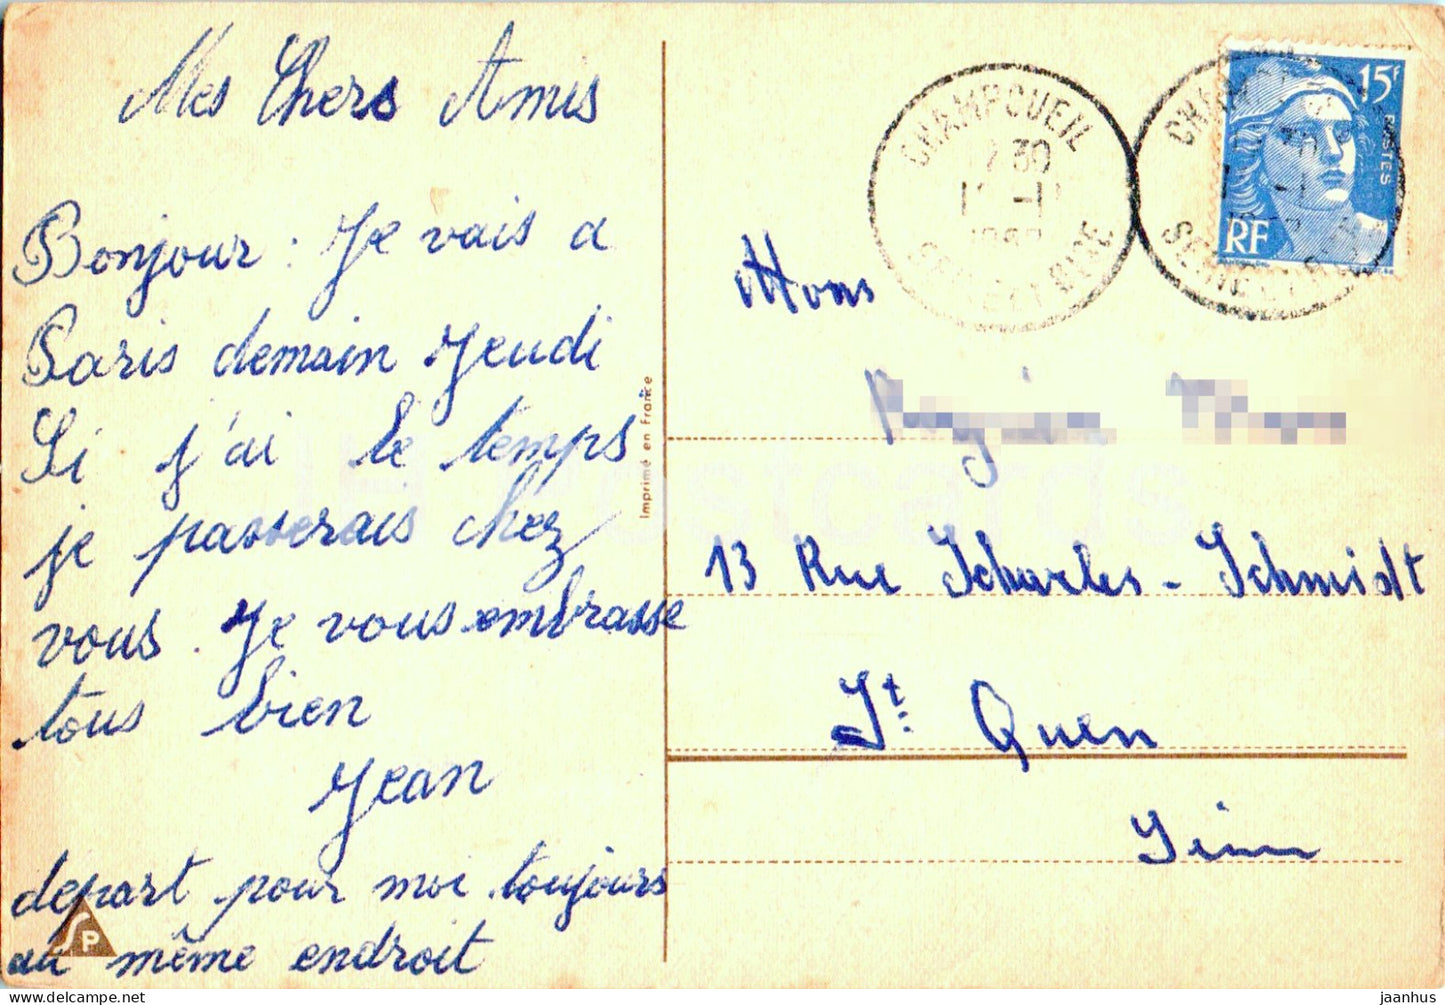 Mes Chers Amis
Bonjour : Je vais a
Paris demain Jeudi
Si j'ai le temps
je passerais chez
vous. Je vous embrasse
tous bien
Jean
depart pour moi toujours
au même endroit
SP
Imprimé en France
CHAMPCUEIL
30
SEINE ET OISE
15F
POSTES
RF
Mons
13 Rue Scharles - Schmidt
St Ouen
Seine
JH Postcards
jaanhus
delcampe.net